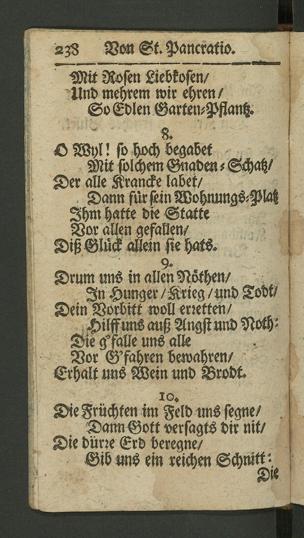 238 Von St. Pancratio.
Mit Rosen Liebkosen/
Und mehrem wir ehren/
So Edlen Garten-Pflantz.
8.
O Wyl! so hoch begabet
Mit solchem Gnaden-Schatz/
Der alle Krancke labet/
Dann für sein Wohnungs-Platz
Ihm hatte die Statte
Vor allen gefallen/
Diß Glück allein sie hats.
9.
Drum uns in allen Nöthen/
In Hunger/Krieg/und Todt/
Dein Vorbitt woll erretten/
Hilff uns auß Angst und Noth:
Die g'falle uns alle
Vor G'fahren bewahren/
Erhalt uns Wein und Brodt.
10.
Die Früchten im Feld uns segne/
Dann Gott versagts dir nit/
Die dürre Erd beregne/
Gib uns ein reichen Schnitt:
Die